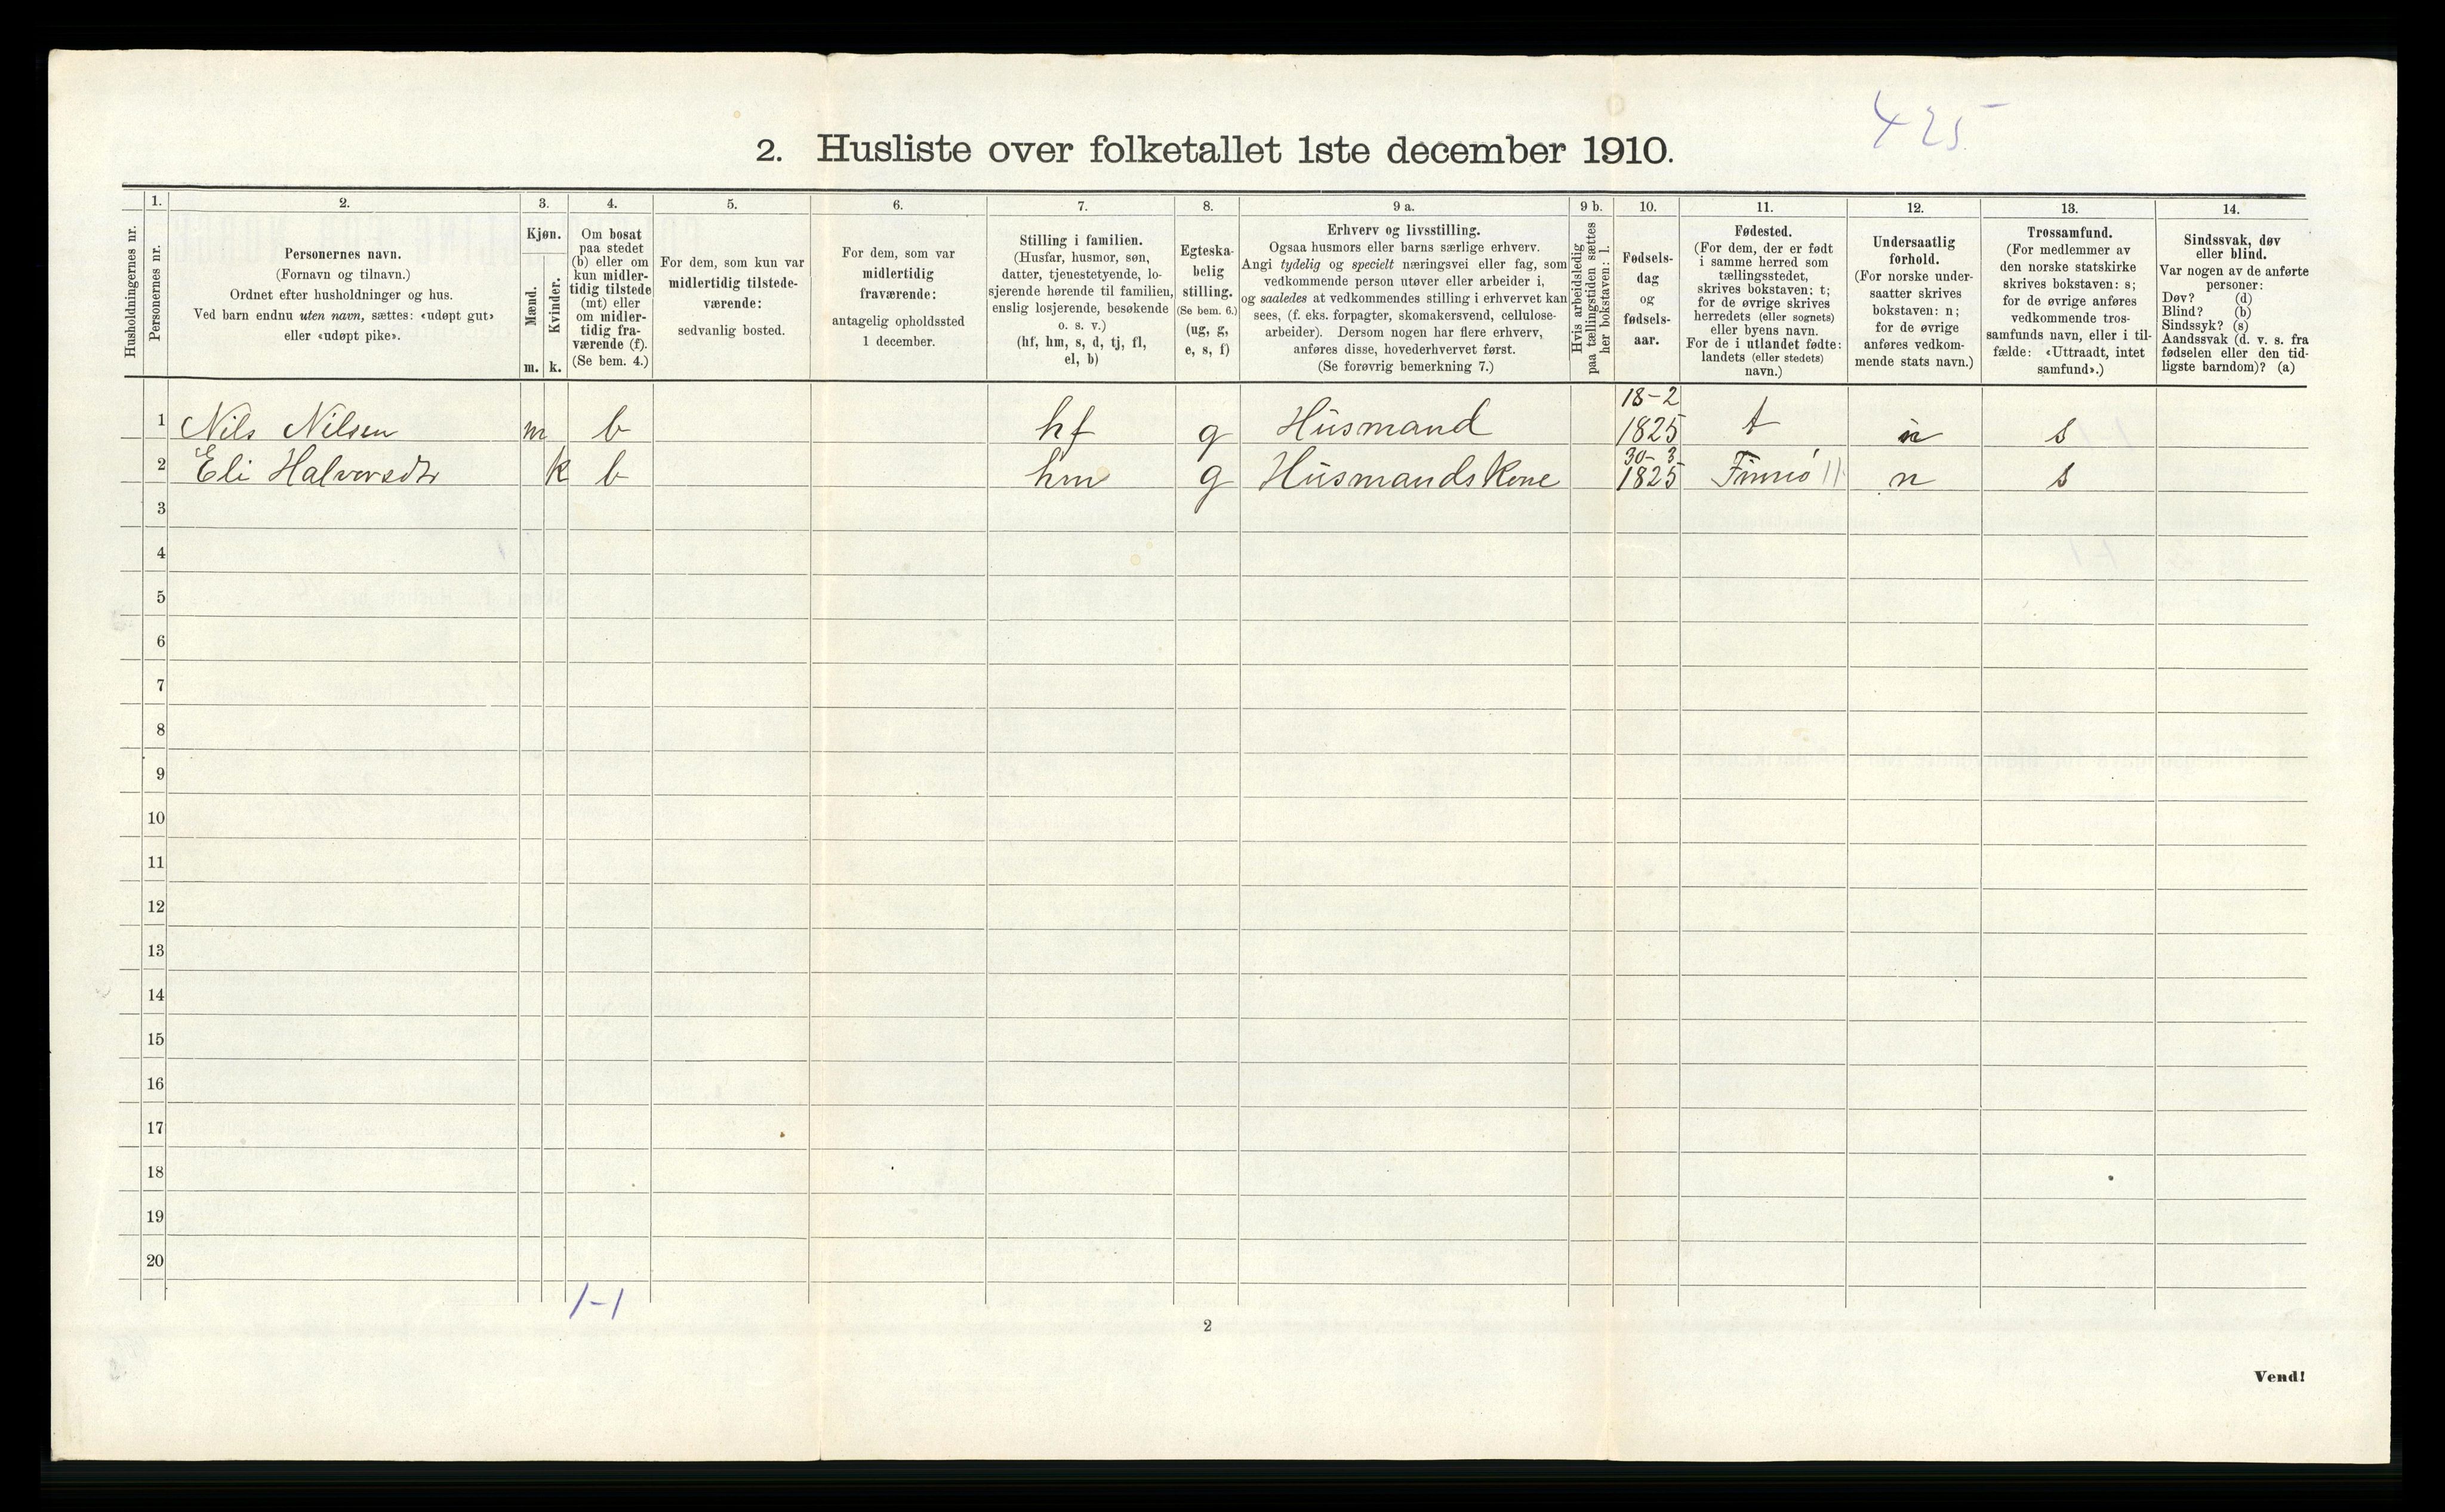 425
2. Husliste over folketallet 1ste december 1910.
1. 2. 3. 4. 5. 6. 7. 8. 9 a. 9 b. 10. 11. 12. 13. 14.
Husholdningernes nr.
Personernes nr.
Personernes navn.
(Fornavn og tilnavn.)
Ordnet efter husholdninger og hus.
Ved barn endnu uten navn, sættes: «udøpt gut»
eller «udøpt pike».
Kjøn.
Mænd.
Kvinder.
m. k.
Om bosat
paa stedet
(b) eller om
kun midler-
tidig tilstede
(mt) eller
om midler-
tidig fra-
værende (f).
(Se bem. 4.)
For dem, som kun var
midlertidig tilstede-
værende:
sedvanlig bosted.
For dem, som var
midlertidig
fraværende:
antagelig opholdssted
1 december.
Stilling i familien.
(Husfar, husmor, søn,
datter, tjenestetyende, lo-
sjerende hørende til familien,
enslig losjerende, besøkende
o. s. v.)
(hf, hm, s, d, tj, fl,
el, b)
Egteska-
belig
stilling.
(Se bem. 6.)
(ug, g,
e, s, f)
Erhverv og livsstilling.
Ogsaa husmors eller barns særlige erhverv.
Angi tydelig og specielt næringsvei eller fag, som
vedkommende person utøver eller arbeider i,
og saaledes at vedkommendes stilling i erhvervet kan
sees, (f. eks. forpagter, skomakersvend, cellulose-
arbeider). Dersom nogen har flere erhverv,
anføres disse, hovederhvervet først.
(Se forøvrig bemerkning 7.)
Hvis arbeidsledig
paa tællingstiden sættes
her bokstaven: l.
Fødsels-
dag
og
fødsels-
aar.
Fødested.
(For dem, der er født
i samme herred som
tællingsstedet,
skrives bokstaven: t;
for de øvrige skrives
herredets (eller sognets)
eller byens navn.
For de i utlandet fødte:
landets (eller stedets)
navn.)
Undersaatlig
forhold.
(For norske under-
saatter skrives
bokstaven: n;
for de øvrige
anføres vedkom-
mende stats navn.)
Trossamfund.
(For medlemmer av
den norske statskirke
skrives bokstaven: s;
for de øvrige anføres
vedkommende tros-
samfunds navn, eller i til-
fælde: «Uttraadt, intet
samfund».)
Sindssvak, døv
eller blind.
Var nogen av de anførte
personer:
Døv? (d)
Blind? (b)
Sindssyk? (s)
Aandssvak (d. v. s. fra
fødselen eller den tid-
ligste barndom)? (a)
1 Nils Nilsen m b hf g Husmand 18-2 1825 t n s
2 Eli Halvorsdtr k b hm g Husmandskone 30-3 1825 Finnö 11 n s
3
4
5
6
7
8
9
10
11
12
13
14
15
16
17
18
19
20
1-1
2
Vend!